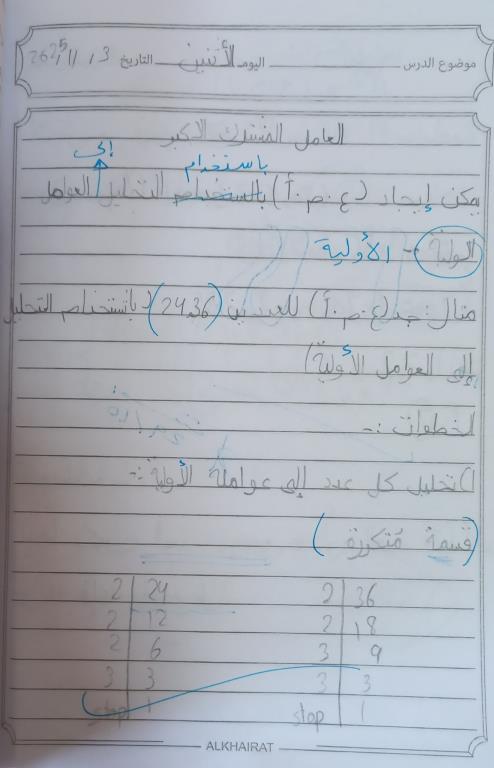 موضوع الدرس اليوم الأثنين التاريخ 3 / 11 / 2025
العامل المشترك الاكبر
باستخدام إلى
يمكن إيجاد (ع.م.أ) باستخدام التحليل العوامل
الولية :- الأولية
مثال: جد (ع.م.أ) للعددين (24,36) (باستخدام التحليل
إلى العوامل الأولية)
الخطوات :-
1) تحليل كل عدد إلى عوامله الأولية :-
(قسمة متكررة)
2 | 24 2 | 36
2 | 12 2 | 18
2 | 6 3 | 9
3 | 3 3 | 3
stop | 1 stop | 1
ALKHAIRAT